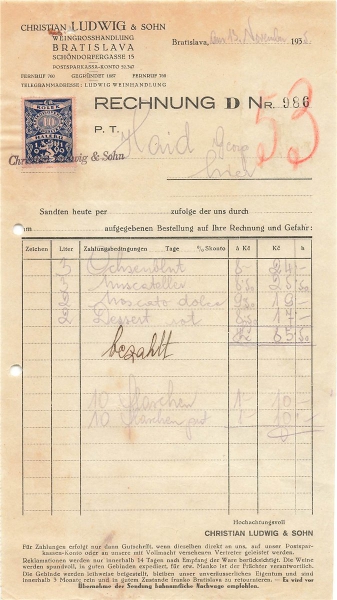 CHRISTIAN LUDWIG & SOHN
WEINGROSSHANDLUNG
BRATISLAVA
SCHÖNDORFERGASSE 15
POSTSPARKASSA-KONTO 52.747
FERNRUF 700 GEGRÜNDET 1887 FERNRUF 700
TELEGRAMMADRESSE: LUDWIG WEINHANDLUNG
Bratislava, den 13. November 193
RECHNUNG D Nr. 986
53
KOLEK
10
HALÉŘŮ
Christian Ludwig & Sohn
P. T.
Haid
Sandten heute per zufolge der uns durch
am aufgegebenen Bestellung auf Ihre Rechnung und Gefahr:
Zeichen Liter Zahlungsbedingungen Tage % Skonto à Kč Kč h
3 Ochsenblut 8- 24 -
3 Muscateller 8 50 25 50
2 Moscato dolce 9 50 19 -
2 Dessert rot 8 50 17 -
Kč 85 50
bezahlt
10 Flaschen 1- 10 -
10 Flaschen 10 -
Hochachtungsvoll
CHRISTIAN LUDWIG & SOHN
Für Zahlungen erfolgt nur dann Gutschrift, wenn dieselben direkt an uns, auf unser Postspar-
kassen-Konto oder an unsere mit Vollmacht versehenen Vertreter geleistet werden.
Reklamationen werden nur innerhalb 14 Tagen nach Empfang der Ware berücksichtigt. Die Weine
werden spundvoll, in guten Gebinden expediert, für etw. Manko ist der Frächter verantwortlich.
Die Gebinde werden leihweise beigestellt, bleiben unser unveräusserliches Eigentum und sind
innerhalb 3 Monate rein und in gutem Zustande franko Bratislava zu retournieren. — Es wird vor
Übernahme der Sendung bahnamtliche Nachwage empfohlen.